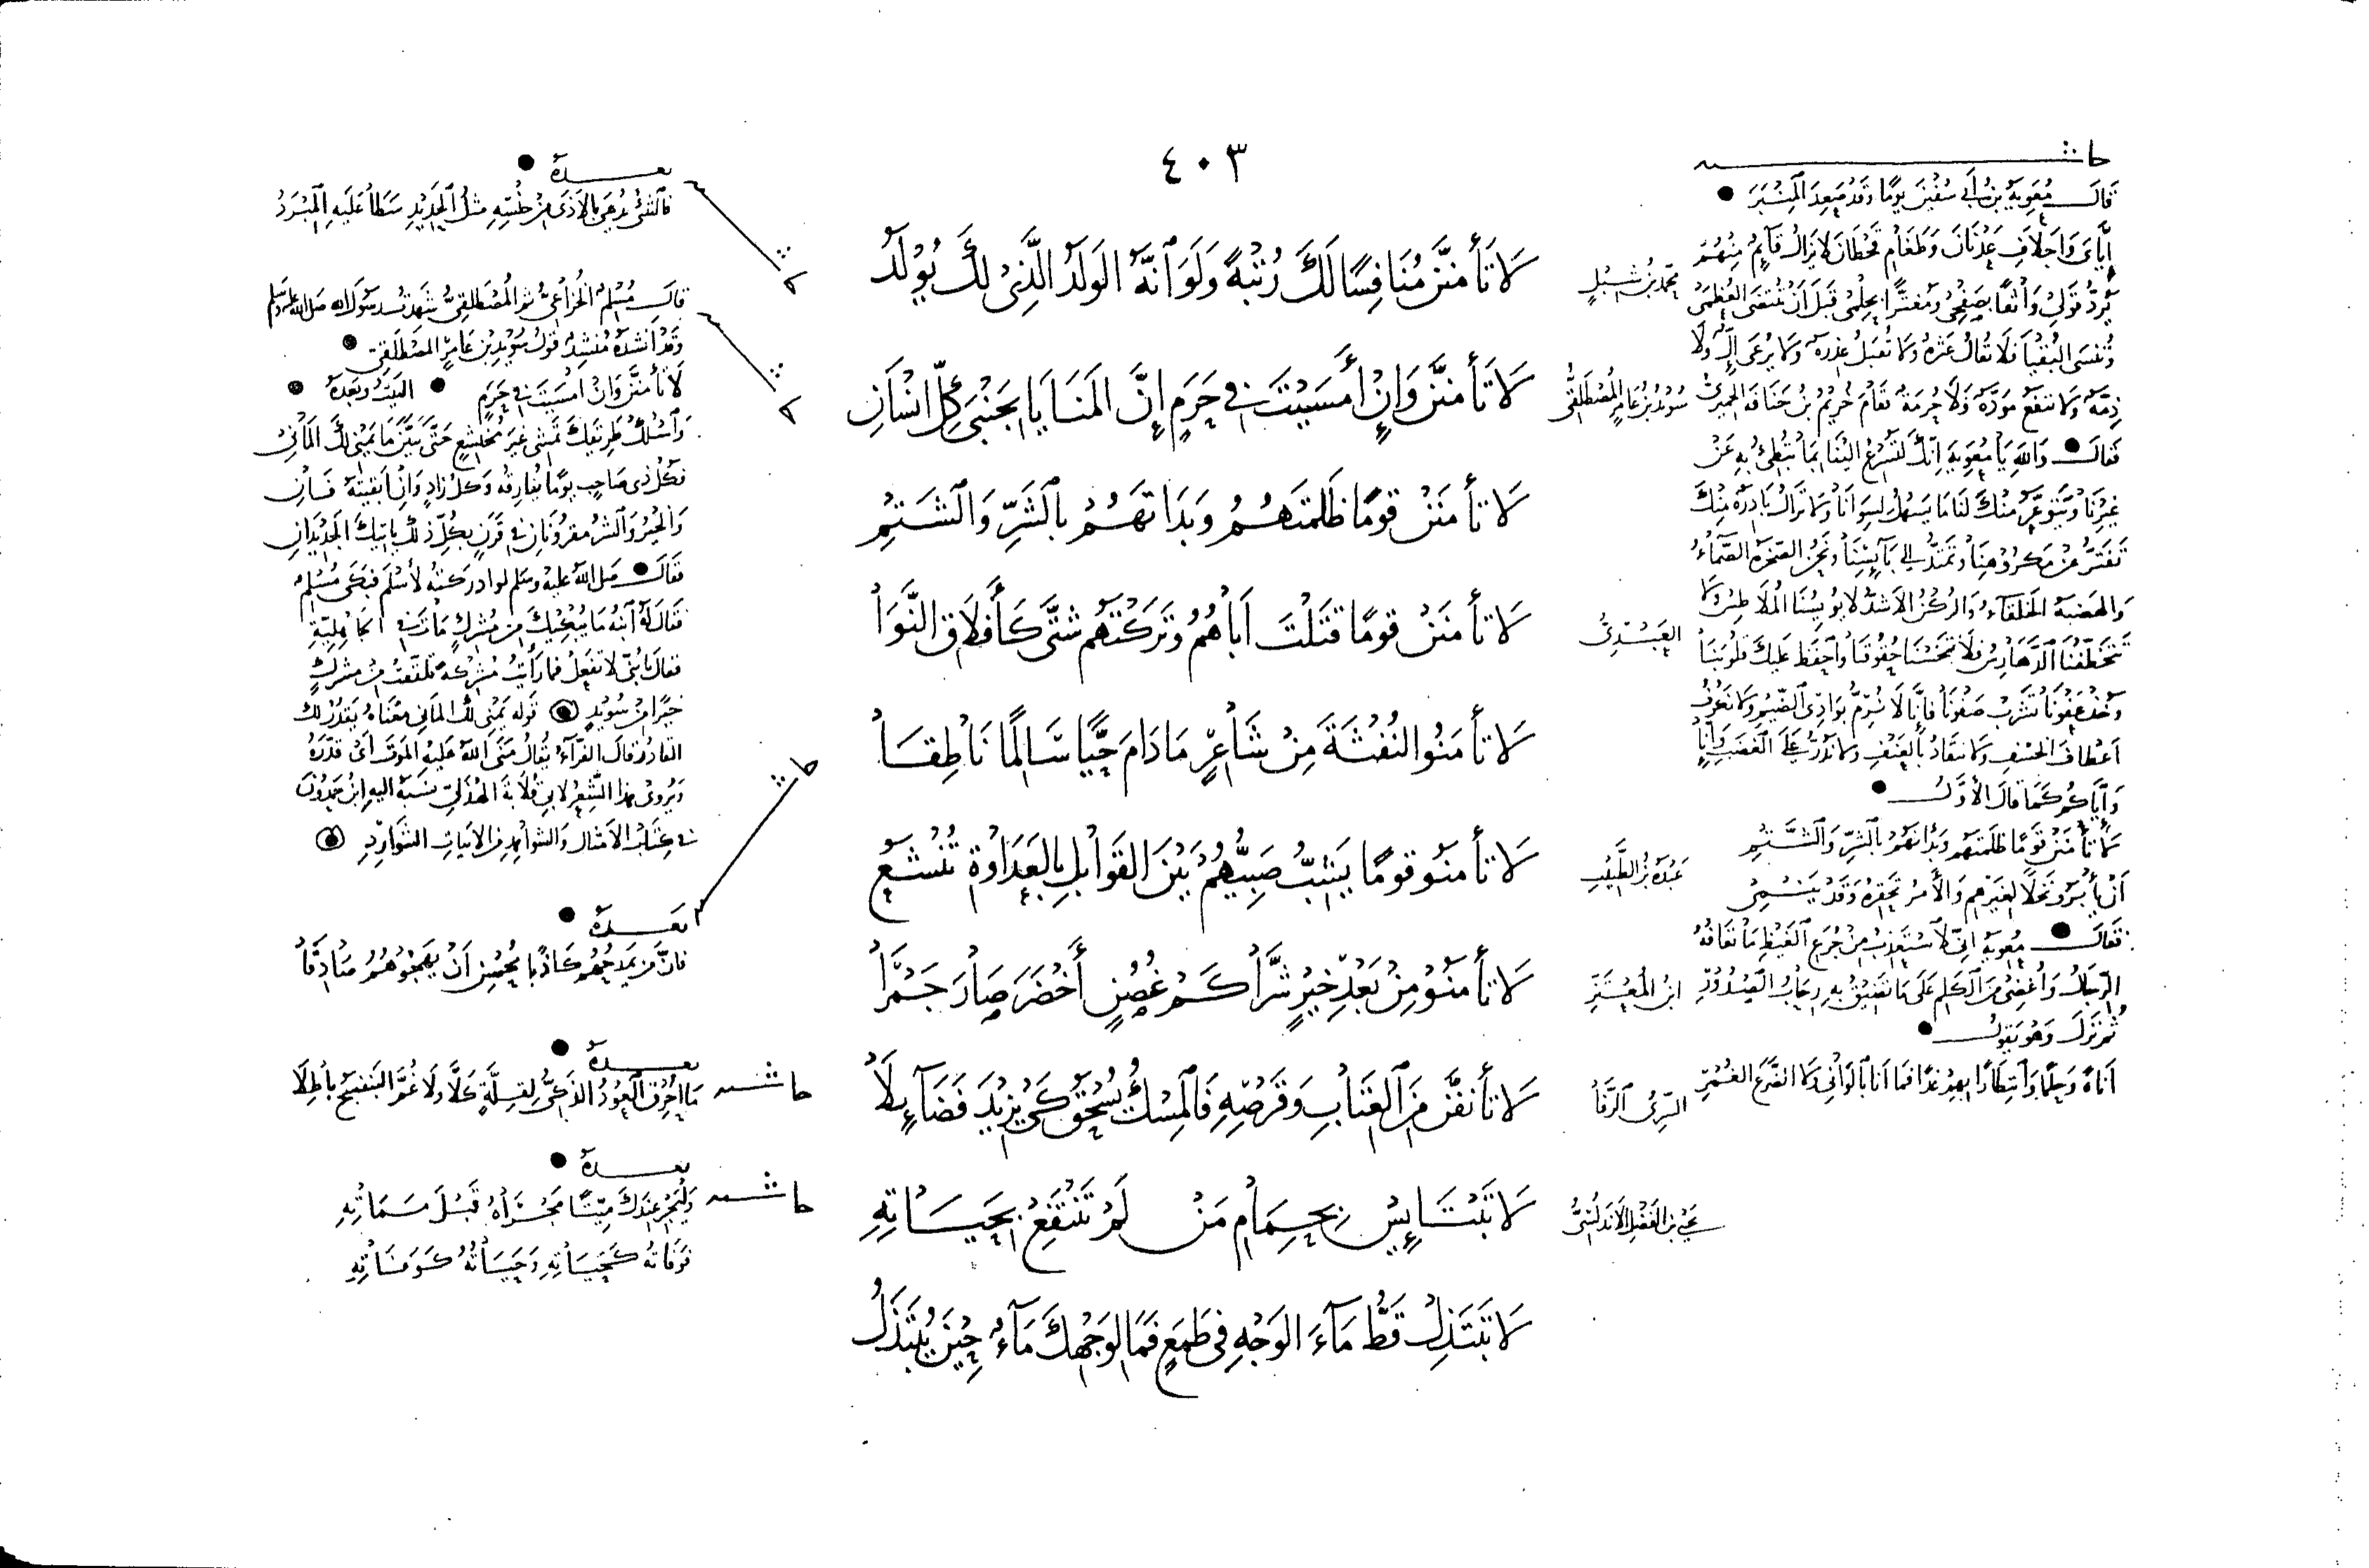 ٤٠٣
لَا تَأْمَنَنَّ مُنَافِسًا لَكَ رُتْبَةً وَلَوَ انَّهُ الوَلَدُ الَّذِي لَكَ يُوْلَدُ
لَا تَأْمَنَنَّ وَإِنْ أَمسَيْتَ فِي حَرَمٍ إِنَّ المَنَايَا بِجَنْبَيْ كُلِّ انْسَانِ
لَا تأمَنَنْ قومًا ظَلمتَهُمُ وَبَدَاتهَمُ بالشَرِّ وَالشَتمِ
لَا تأمَنَنْ قومًا قتَلْتَ اَباهُمُ وَتَرَكْتَهُم شتَّى كَأفلَاقِ النَّوَا
لَا تأمَنُوا لنُفثَةَ مِنْ شَاعِرٍ مَا دَامَ حَيًّا سَالِمًا نَاطِقَا
لَا تأمنُو قومًا يَشِبُّ صَبِيُّهُمْ بَيْنَ القَوَابِلِ بِالعَدَاوَةِ تُنْشَعِ
لَا تأمنُو مِنْ بَعْدِ خَيْرٍ شَرَّا كَمْ غُصُنٍ أَخْضَرَ صَارَ جَمْرَا
لَا تأنفنَّ مِنَ العِتَابِ وَقَرْصِهِ فَالمِسْكُ يُسْحَقُ كَيْ يزِيْدَ فَضَائِلَا
لَا تَبْتَئِسْ بِحِمَامِ مَنْ لَمْ تَنْتَفِعْ بِحَيَاتِهِ
لَا تَبْتَذِلْ قَطُّ مَاءَ الوَجْهِ فِي طَمَعٍ فَمَا لوَجْهِكَ مَاءُ حِيْنَ يُبْتَذَلُ
محمد بن شبلٍ
سُوَيْد بن عَامِر المُصْطَلَقِي
العَبْدِيُّ
عَبْدَةُ بن الطَّبِيْبِ
ابن المُعْتَزِّ
السَّرِيُّ الرَّفَّا
يحيى بن الفضل الاندلسي
حاشيه
قَالَ مُعَوِيَةُ بن أَبِي سُفْيَنَ يومًا وَقَد صَعِدَ المِنْبَرَ
إيَّايَ وَاَجلَافِ عَدْنَانَ وَطَغَامِ قَحْطَانَ لَا يزَالُ قَائِمٌ مِنْهُمْ
يَرُدُّ قَوْلِي وَاثقًا بِصَفْحِي وَمُغْتَرًّا بِحِلْمِي قَبلَ اَنْ تُنْتَضَى العُظمَى
وَتُنسَى البُقْيَا فَلَا تُقَالُ عَثْرَهٌ وَلَا تُقبَلُ عِذرَهٌ وَلَا يُرعَى إِلٌّ وَلَا
ذِمَّةٌ وَلَا تنفَعُ مَوَدَّهٌ وَلَا حُرمَةٌ فَقَامَ خُرَيْمُ بن الحِمْيَرِيُّ
فَقَالَ وَاللهِ يَا مُعَوِيَةُ اِنَّكَ لتُسْرِعُ اليْنَا بِمَا تُبْطِئُ بهِ عَنْ
غَيْرِنَا وَيَتَوَعَّرُ مِنْكَ لنَا مَا يَسْهُلُ لِسِوَانَا وَلَا تزَالُ بَادِرَةٌ مِنْكَ
وَنَحْنُ الصَّخرَهُ الصَّمَّاءُ
وَالهَضبَهُ الخَلقَاءُ وَالرُكْنُ الاَشدُّ
فَلَا تَبْخَسْنَا حُقُوقَنَا وَاحفَظ عَليْكَ قلُوبَنَا
وَخُذْ عَفْوَنَا تَشْرَبْ صَفْوَنَا فَإِنَّا
وَلَا نَنقَادُ بِالعُنْفِ وَلَا نَدُرُّ عَلَى الغَضَبِ وَإِنَّا
وَإِيَّاكُمْ كَمَا قَالَ الأَوَّلُ
لَا تأمَنَنْ قَومًا ظَلَمتَهُم وَبَدَاتهُم بالشَّرِّ وَالشَّتمِ
اَنْ يأبُرُو نَخلًا لِغَيْرِهِم وَالأَمرُ تَحْقِرُهُ وَقَدْ يَنْمِي
فَقَالَ مُعَوِيَهُ اِنِّي لَأَسْتَعذِبُ مِنْ جُرَعِ الغَيْظِ مَا تعَافُهُ
الرِّجَالُ وَاُغضِي مِنَ الكَلِمِ عَلَى مَا تَضِيْقُ بهِ رِحَابُ الصُّدُوْرِ
ثُمَّ نَزَلَ وَهُوَ يَقُولُ
اَناةً وَحِلْمًا وَانتِظَارًا بِهِمْ غدًا فَمَا اَنا بالوَانِي وَلَا الضَّرَعِ الغُمْرِ
بعـدهُ
فالشئُ يُدهَى بالأَذَى مِنْ جِنْسِهِ مِثْلُ الحَدِيْدِ سَطا عَليْهِ المِبْرَدُ
قَالَ مُسْلِمٌ الخُزَاعِيُّ ثم المُصْطَلِقِيُّ شَهِدْتُ رَسُولَ الله صلى الله عليه وسلم
وَقَدْ انشَدَهُ مُنشِدٌ قَولَ سُوَيْدِ بن عَامِرٍ المصْطَلَقِي
لَا تأمنَنَّ وَانْ اَمْسَيْتَ فِي حَرَمٍ البَيْتُ وَبَعْدَهُ
وَاسْلُكْ طَرِيقَكَ تَمْشِي غيَرَ مُخْتَشِعٍ حَتَّى تَبَيَّنَ مَا يَمْنِي لَكَ المَانِي
فَكُلُّ ذِي صَاحِبٍ يَومًا يُفَارِقُهُ وَكُلُّ زَادٍ وَاِنْ اَبقَيْتَهُ فَانِ
وَالخيْرُ وَالشَرُّ مقرُونَانِ فِي قَرَنٍ بِكُلِّ ذَلِكَ يَاتِيْكَ الجَدِيْدَانِ
فَقَالَ صَلى اللهُ عَليهِ وَسَلم لو ادرَكتُهُ لأَسْلَمَ فبَكَى مُسْلِمٌ
فَقَالَ لهُ ابنُهُ مَا يُبْكِيْكَ مِن مُشرِكٍ مَاتَ فِي الجَاهِلِيَّةِ
فقالَ يَا بُنَيَّ لَا تَفعَلْ فمَا رَأَيْتُ مُشْرِكَةً تلقَّفَتْ مِنْ مشرِكٍ
خَيْرًا مِنْ سُوَيْدٍ قَولُهُ يَمْنِي لَكَ المَانِي مَعْنَاهُ يُقَدِّرُ لكَ
القَادِرُ قَالَ الفَرَّاءُ يُقَالُ مَنَى اللهُ عَليْهِ المَوتَ اَيْ قَدَّرَهُ
وَيُروَى هَذا الشِّعرُ لابِي قُلَابَةَ الهُذَليِّ نَسَبَهُ اليهِ ابنُ حَمدُوْنَ
فِي كِتَابِ الاَمثَالِ وَالشواهِدِ من الابيَاتِ الشَوَارِدِ
بَعـدهُ
فَانَّ مَن يَمدَحُهُمْ كَاذِبًا يُحْسِنُ اَنْ يَهجُوْهُمُ صَادِقَا
بعـدهُ
حاشيه
مَا اُحْرِقَ العُوْدُ الذَكِيُّ لِقِلَّةٍ كَلَّا وَلَا غُمَّ البَنَفسَجُ بَاطِلَا
بعـدهُ
حاشيه
وَلْيُجْرَ عِندَكَ مَيِّتًا مَجْرَاهُ قَبْلَ مَمَاتِهِ
فَوَفَاتهُ كَحَيَاتِهِ وَحَيَاتُهُ كَوَفَاتِهِ